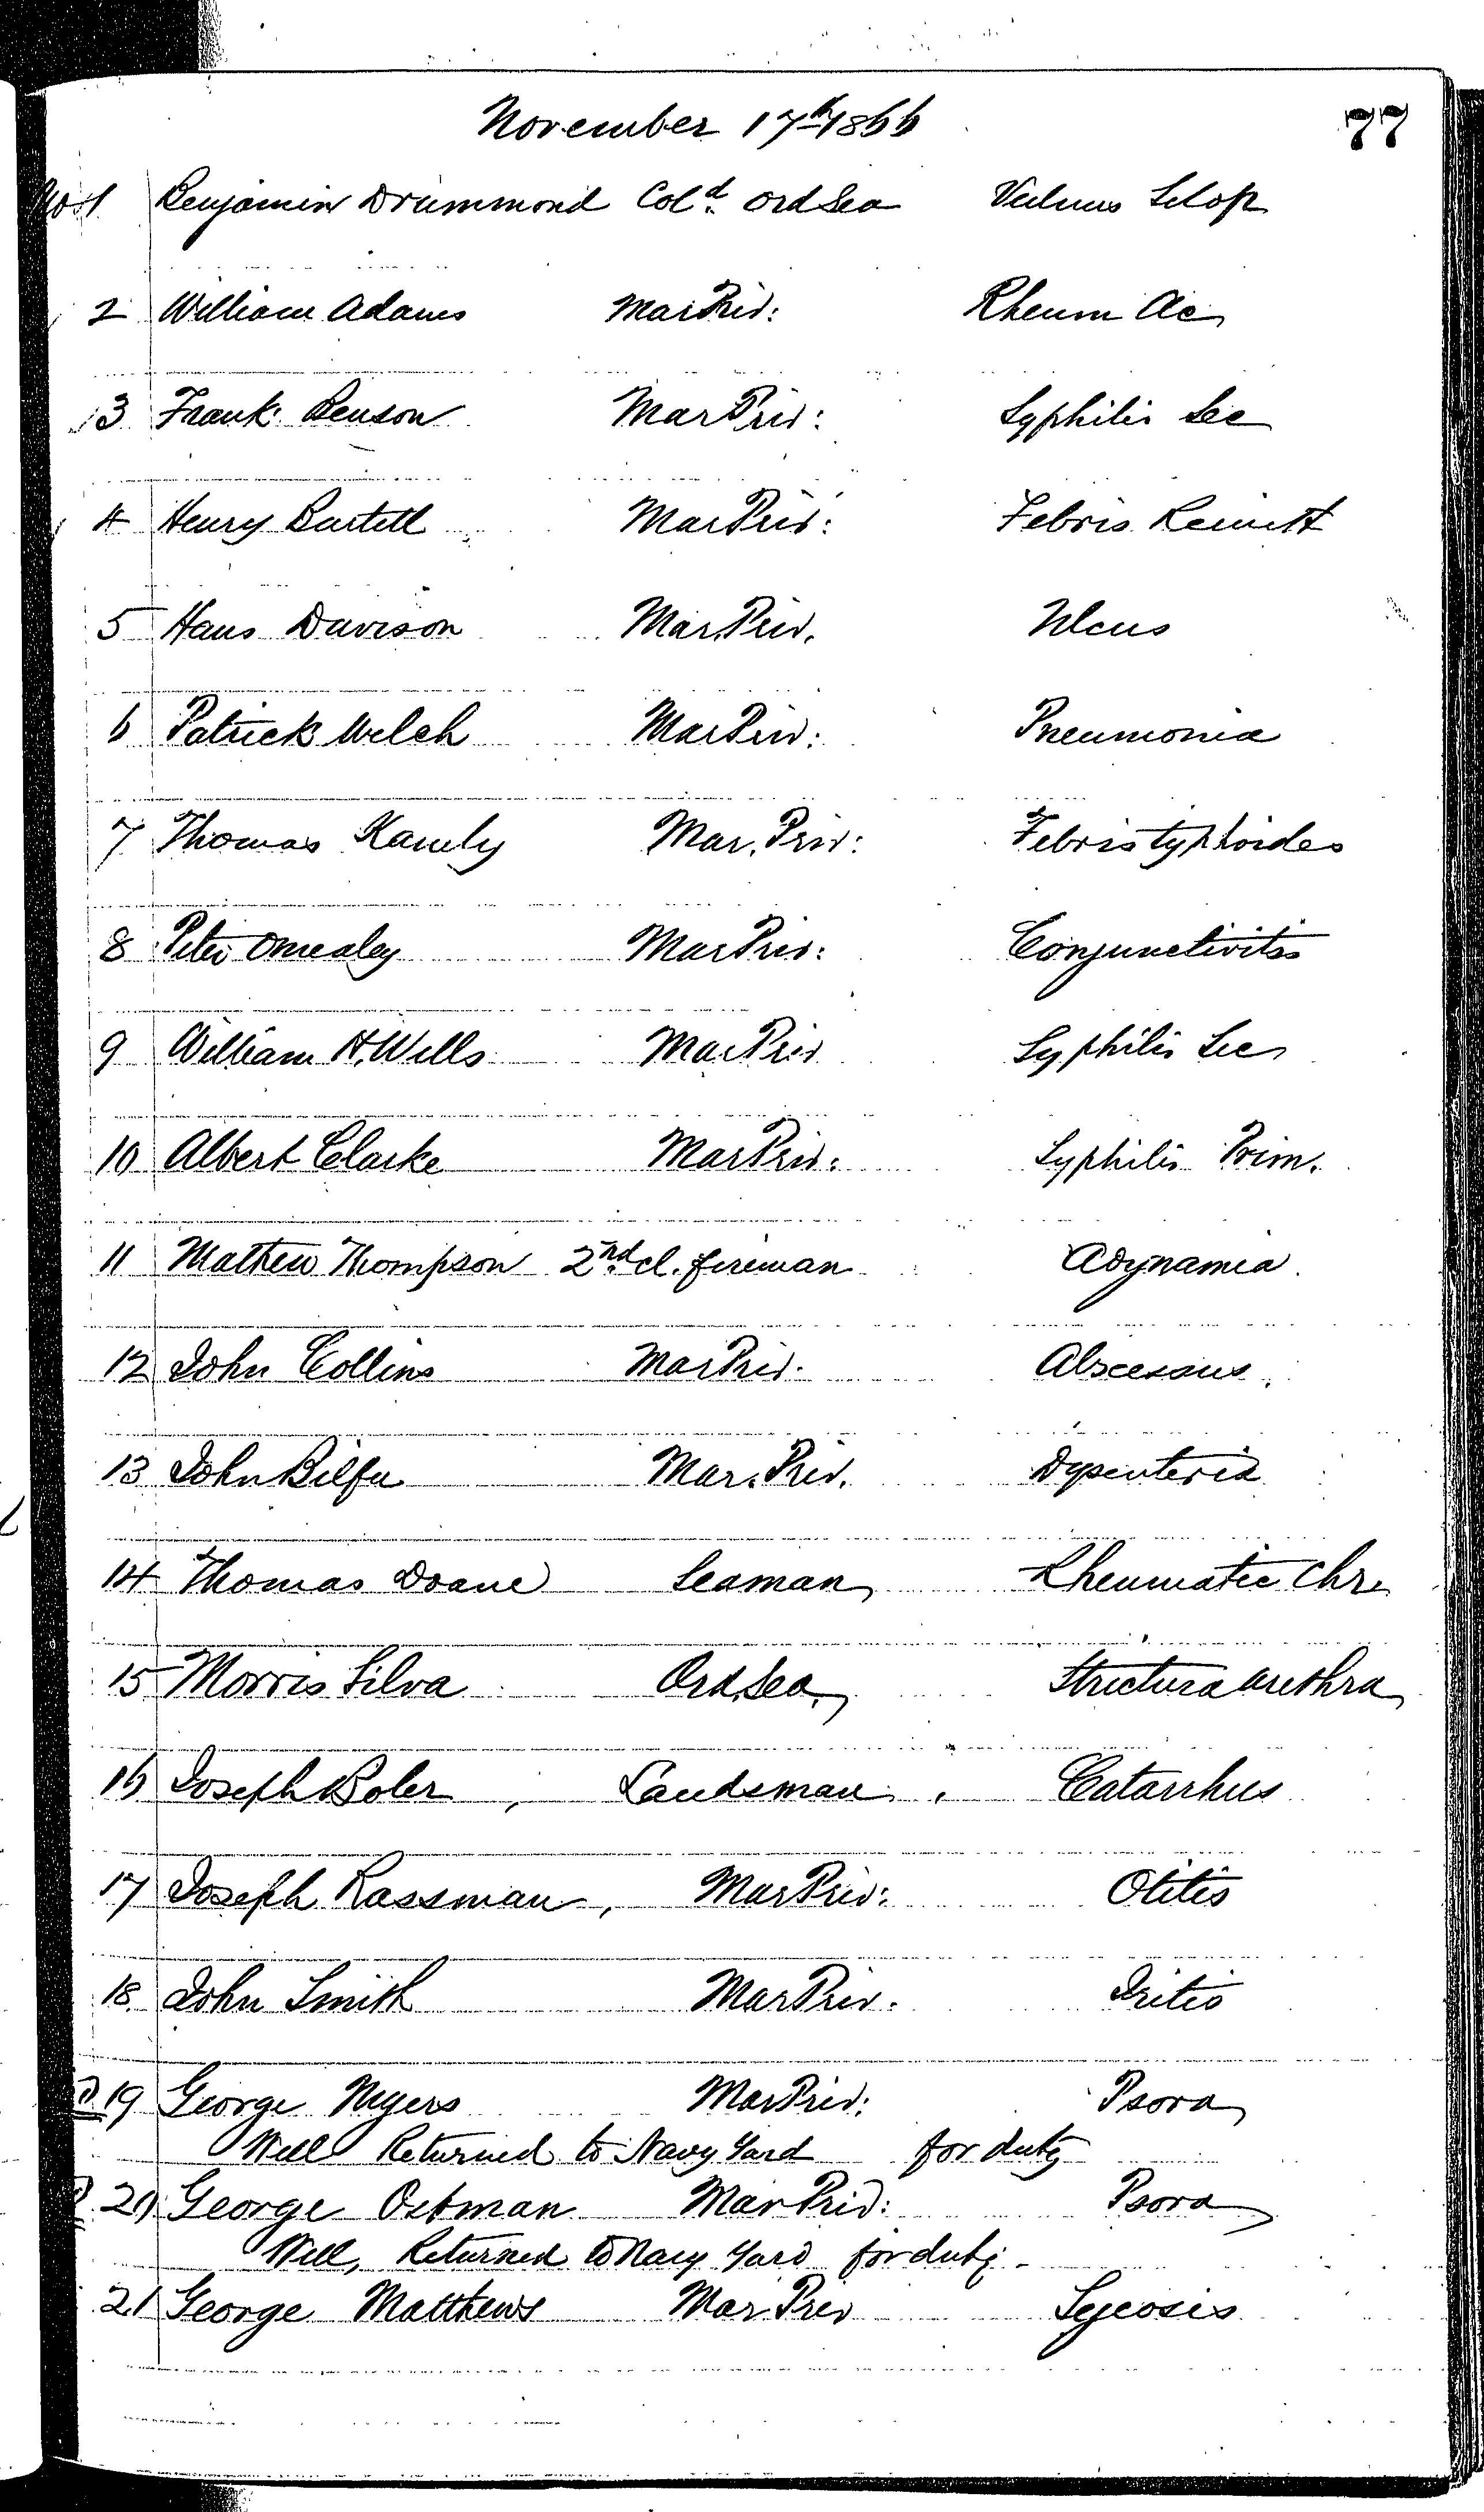 November 17th 1866
77
No 1 Benjamin Drummond Cold. Ord Sea Vulnus Sclop
2 William Adams Mar Priv: Rheum Ac
3 Frank Benson Mar Priv: Syphilis Sec
4 Henry Bartell Mar Priv: Febris Remitt
5 Hans Davison Mar. Priv. Ulcus
6 Patrick Welch Mar Priv: Pneumonia
7 Thomas Mar. Priv: Febris typhoides
8 Peter Omealey Mar Priv: Conjunctivitis
9 William H. Wells Mar Priv Syphilis Sec
10 Albert Clarke Mar Priv: Syphilis Prim.
11 Mathew Thompson 2nd cl. fireman Adynamia
12 John Collins Mar Priv. Abscessus.
13 John Mar. Priv. Dysenteria
14 Thomas Doane Seaman Rheumatic Chr.
15 Morris Silva Ord. Sea Strictura urethra
16 Joseph Boler, Landsman, Catarrhus
17 Joseph Rassman, Mar Priv: Otitis
18. John Smith Mar Priv. Iritis
D 19 George Myers Mar Priv: Psora
Well Returned to Navy Yard for duty
D. 20 George Ostman Mar Priv: Psora
Well, Returned to Navy Yard for duty.
21 George Matthews Mar Priv Sycosis